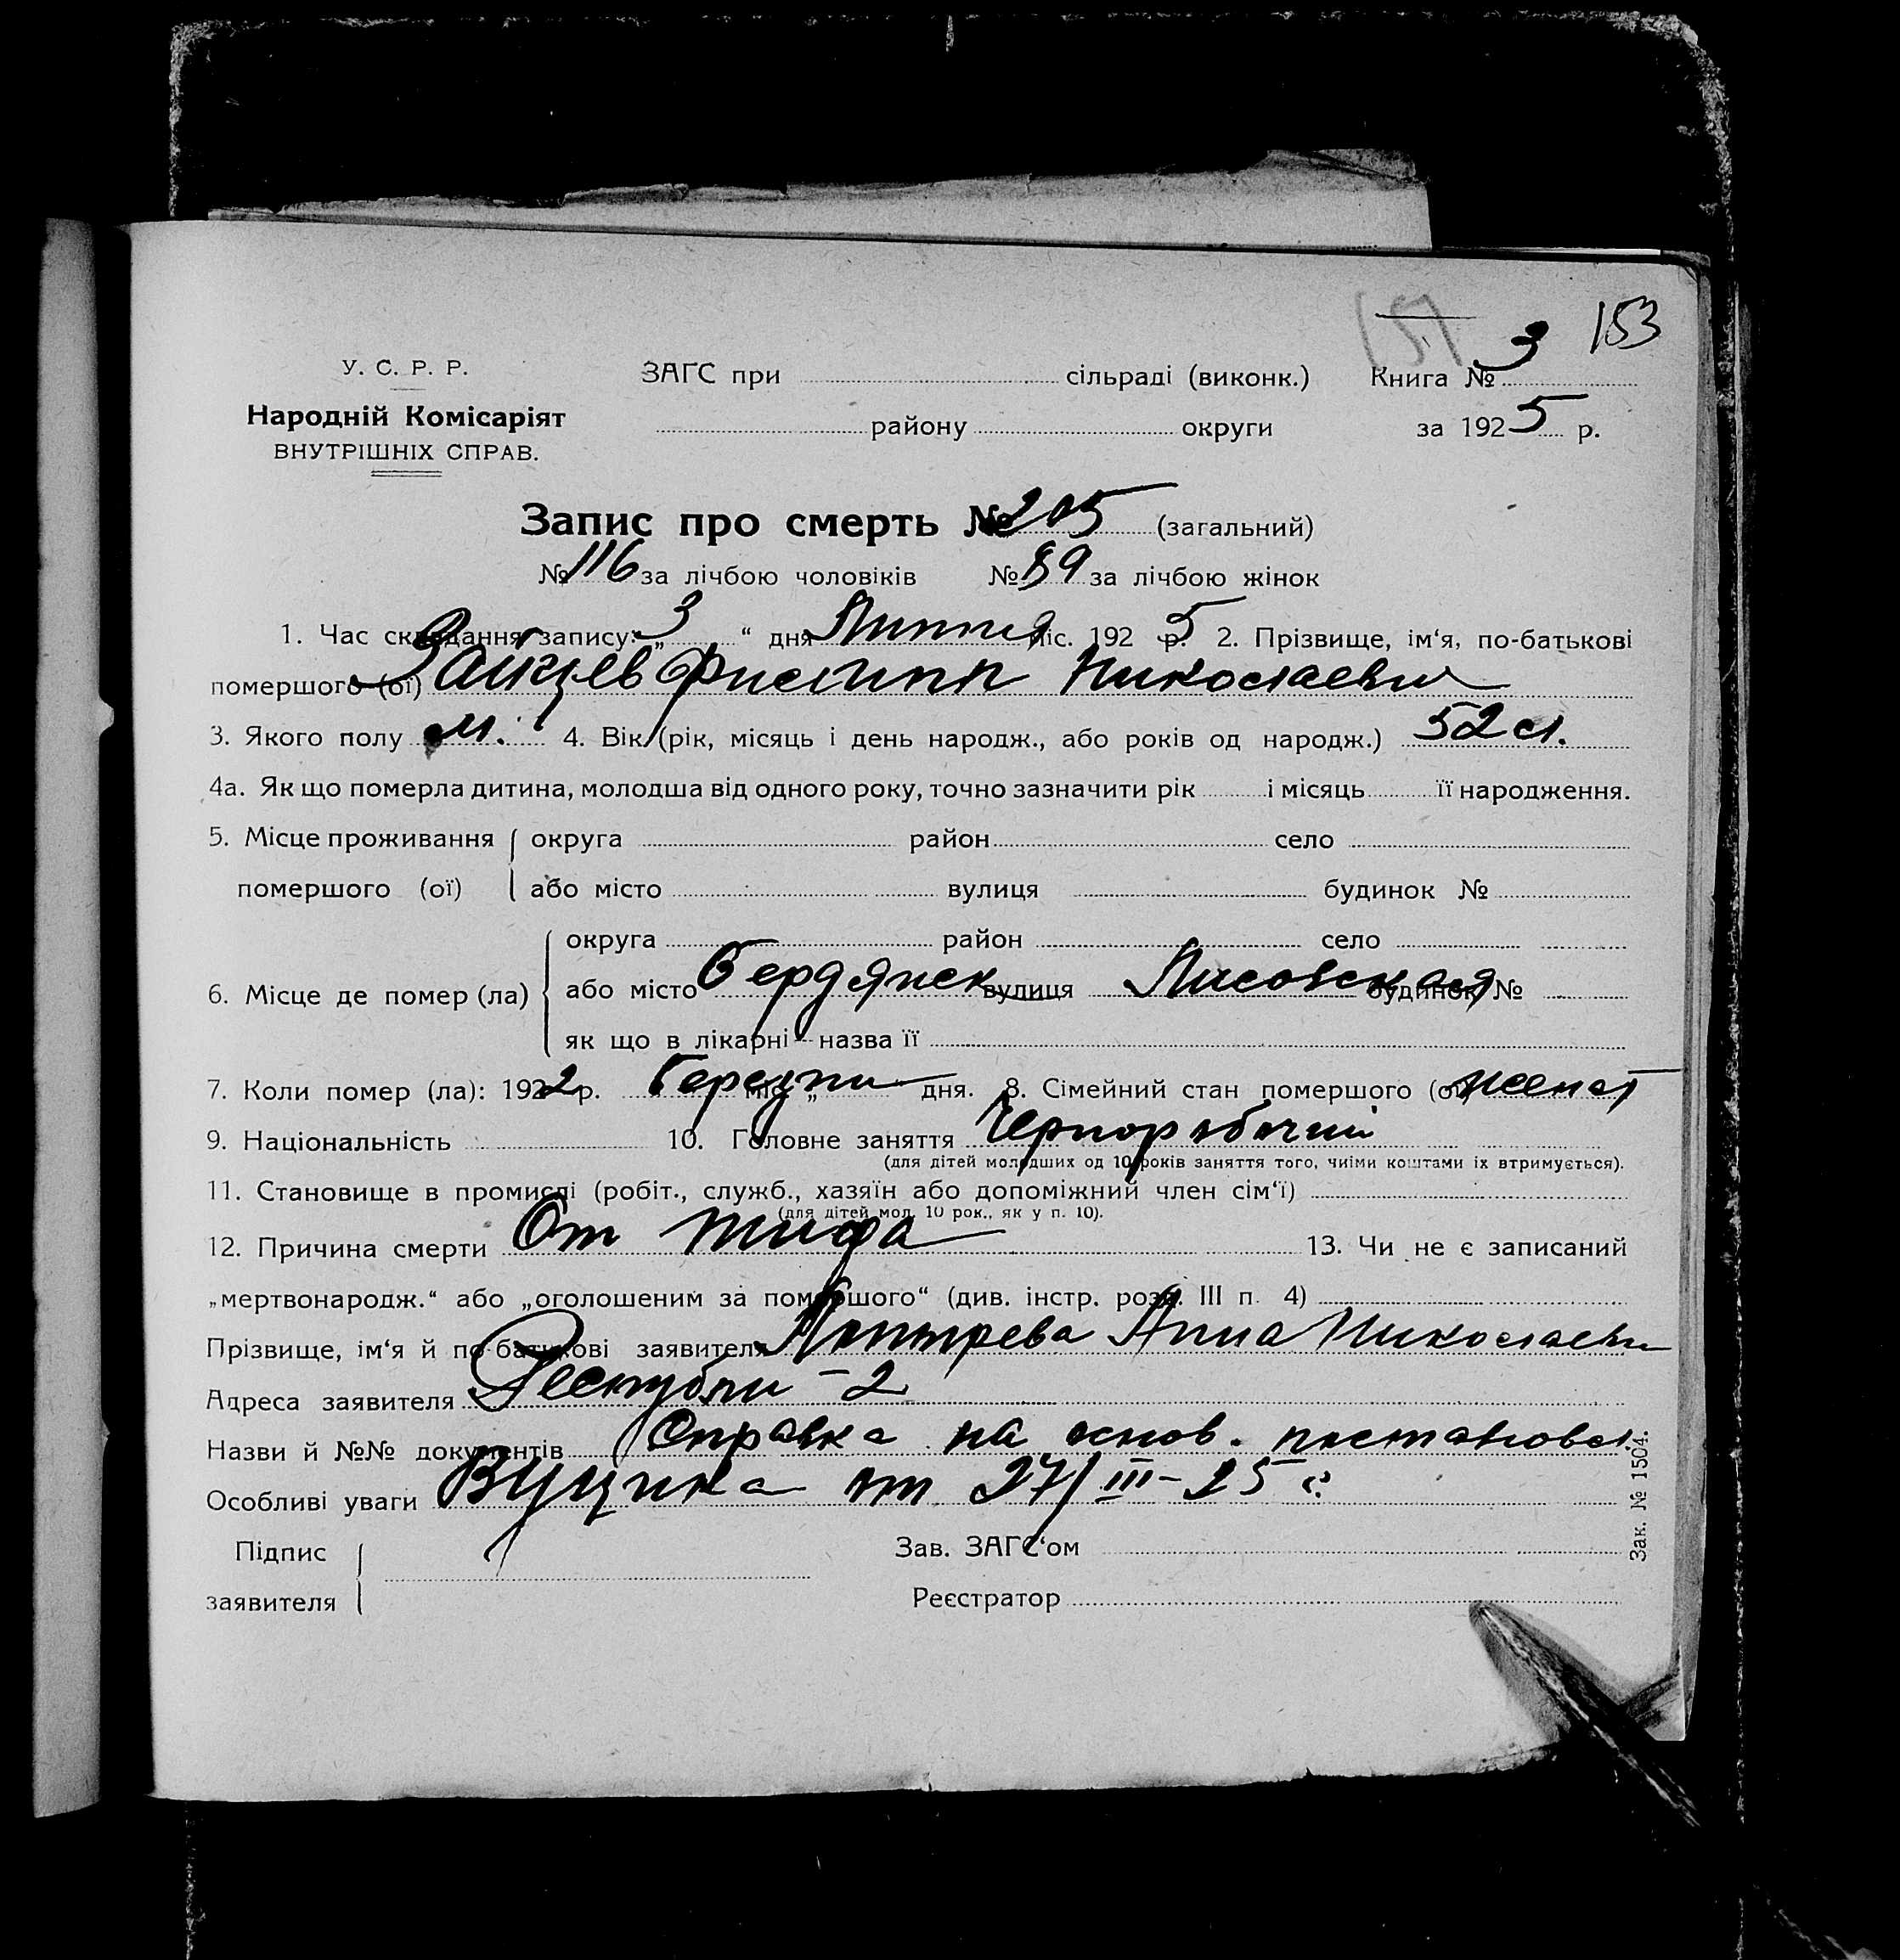 153
У. С. Р. Р. ЗАГС при сільраді (виконк.) Книга № 3
Народній Комісаріят району округи за 1925 р.
ВНУТРІШНІХ СПРАВ.
Запис про смерть № 205 (загальний)
№ 116 за лічбою чоловіків № 89 за лічбою жінок
1. Час складання запису: „3“ дня Липня міс. 1925 р. 2. Прізвище, ім‘я, по-батькові
помершого (ої) Зайцев Филипп Николаевич
3. Якого полу м. 4. Вік (рік, місяць і день народж., або років од народж.) 52 л.
4а. Як що померла дитина, молодша від одного року, точно зазначити рік і місяць її народження.
5. Місце проживання округа район село
помершого (ої) або місто вулиця будинок №
округа район село
6. Місце де помер (ла) або місто Бердянск вулиця Лисовская будинок №
як що в лікарні - назва її
7. Коли помер (ла): 1922 р. Березня міс. „ дня. 8. Сімейний стан помершого (ої) женат
9. Національність 10. Головне заняття Чернорабочий
(для дітей молодших од 10 років заняття того, чиїми коштами їх втримується).
11. Становище в промислі (робіт., служб., хазяїн або допоміжний член сім‘ї)
(для дітей мол. 10 рок., як у п. 10).
12. Причина смерти От тифа 13. Чи не є записаний
„мертвонародж.“ або „оголошеним за помершого“ (див. інстр. розд. III п. 4)
Прізвище, ім‘я й по-батькові заявителя Анна Николаевн
Адреса заявителя Республи - 2
Назви й №№ документів Справка на основ. постановл.
Особливі уваги ВУЦИКа от 27/III-25 г.
Підпис Зав. ЗАГС‘ом
заявителя Реєстратор
Зак. № 1504.